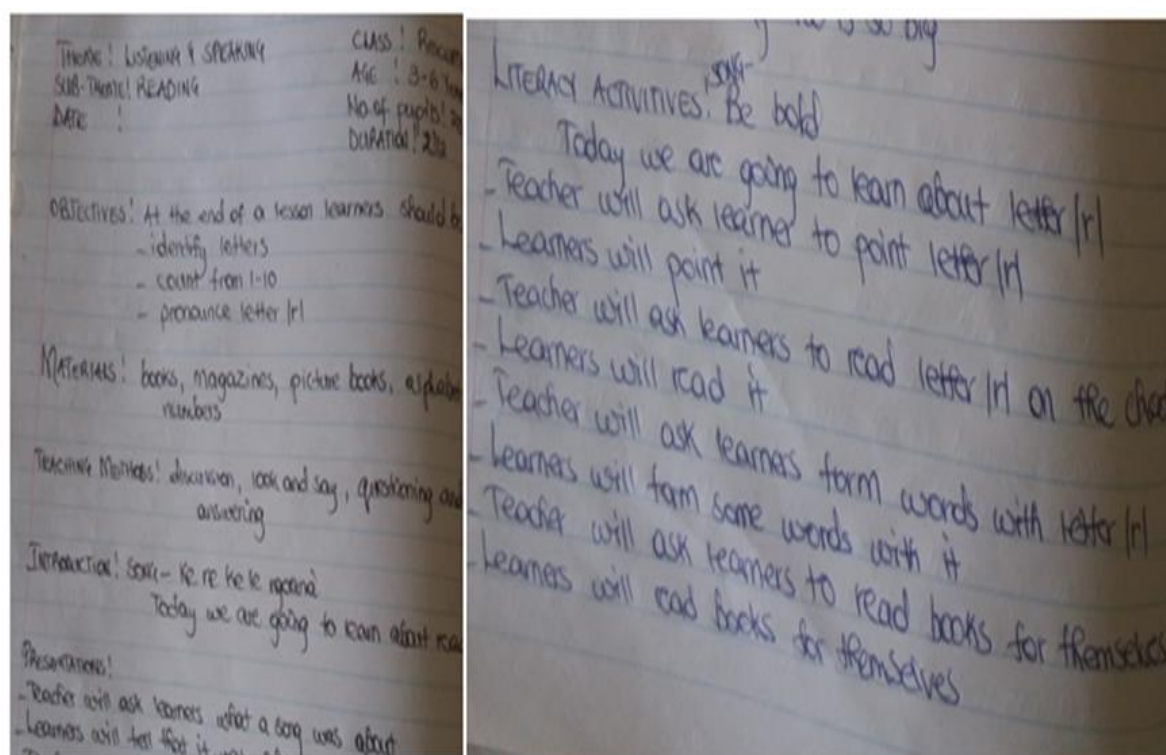 THEME! LISTENING & SPEAKING
SUB-THEME! READING
DATE !
CLASS!
AGE ! 3-6
No of pupils!
DURATION!
OBJECTIVES! At the end of a lesson learners should
- identify letters
- count from 1-10
- pronounce letter |r|
MATERIALS! books, magazines, picture books,
numbers
TEACHING METHODS! discussion, look and say, questioning and
answering
INTRODUCTION! SONG- Ke re ke le
Today we are going to learn about
PRESENTATIONS!
- Teacher will ask learners what a song was about
- Learners will tell that it
is so big
LITERACY ACTIVITIVES. SONG- Be bold
Today we are going to learn about letter |r|
- Teacher will ask learner to point letter |r|
- Learners will point it
- Teacher will ask learners to read letter |r| on the
- Learners will read it
- Teacher will ask learners form words with letter |r|
- Learners will form some words with it
- Teacher will ask learners to read books for themselves
- Learners will ead books for themselves